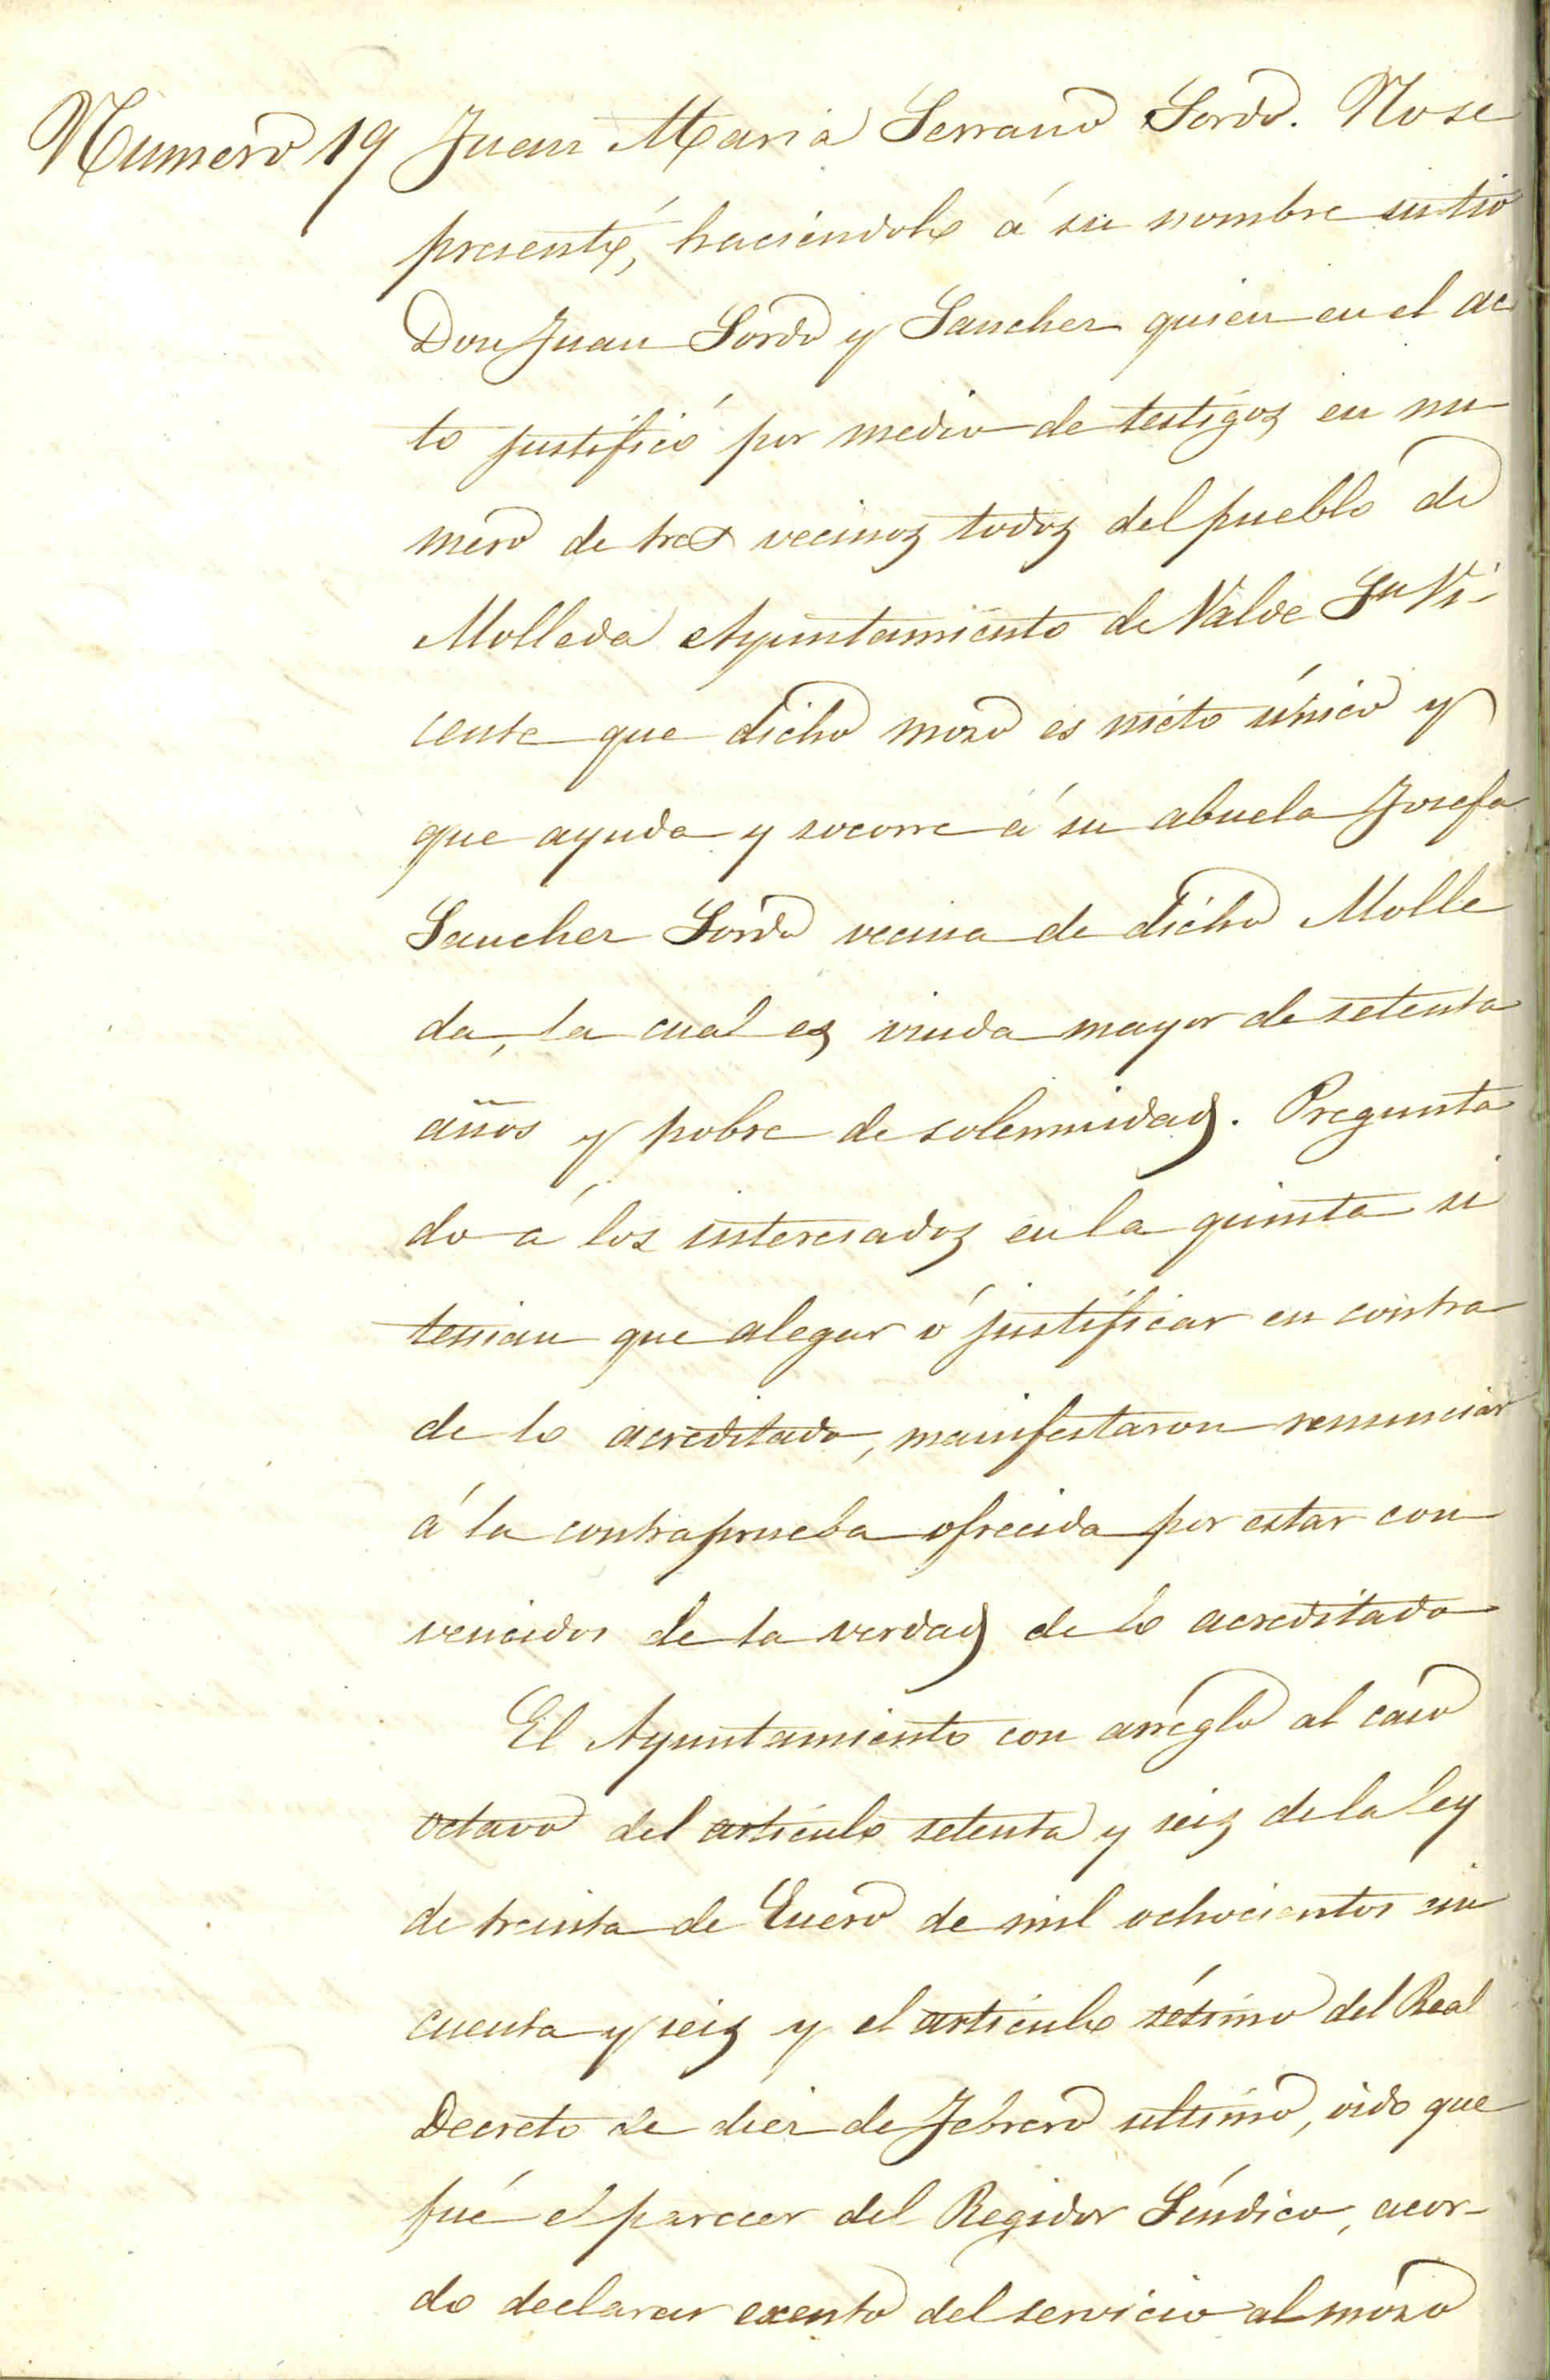 Numero 19 Juan Maria Serrano Sordo. No se
presentó, haciéndolo á su nombre su tio
Don Juan Sordo y Sanchez quien en el ac
to justificó por medio de testigos en nu
mero de tres vecinos todos del pueblo de
Molleda Ayuntamiento de Valde Sn Vi-
cente que dicho mozo es nieto único y
que ayuda y socorre á su abuela Josefa
Sanchez Sordo vecina de dicho Molle
da, la cual es viuda mayor de setenta
años y pobre de solemnidad. Pregunta
do á los interesados en la quinta si
tenian que alegar ó justificar en contra
de lo acreditado, manifestaron renunciar
á la contraprueba ofrecida por estar con
vencidos de la verdad de lo acreditado
El Ayuntamiento con arreglo al caso
octavo del artículo setenta y seis de la ley
de treinta de Enero de mil ochocientos cin
cuenta y seis y el artículo sétimo del Real
Decreto de diez de Febrero ultimo, oido que
fué el parecer del Regidor Síndico, acor-
do declarar exento del servicio al mozo